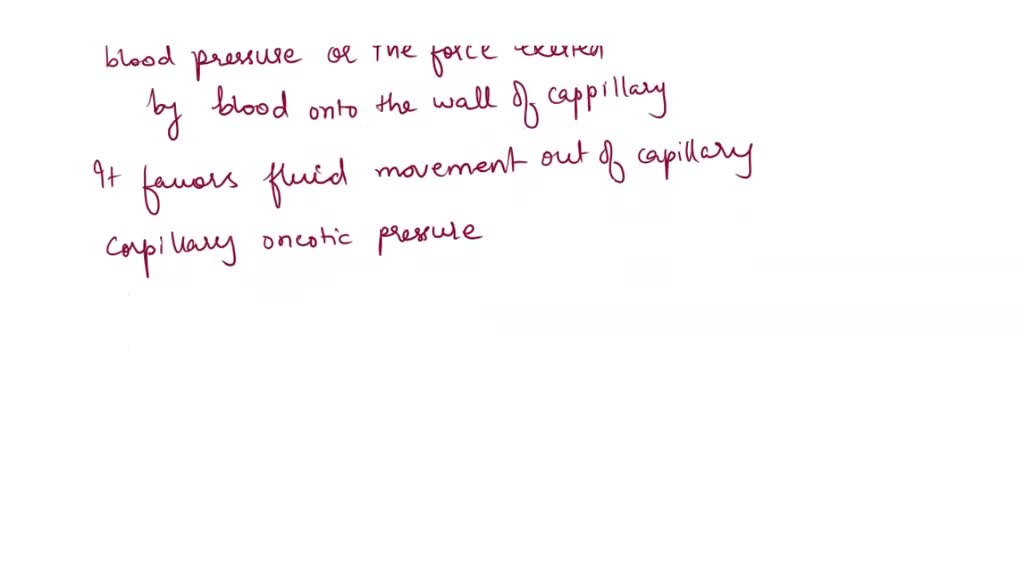 blood pressure or The force exerted
by blood onto the wall of cappillary
It favors fluid movement out of capillary
capillary oncotic pressure